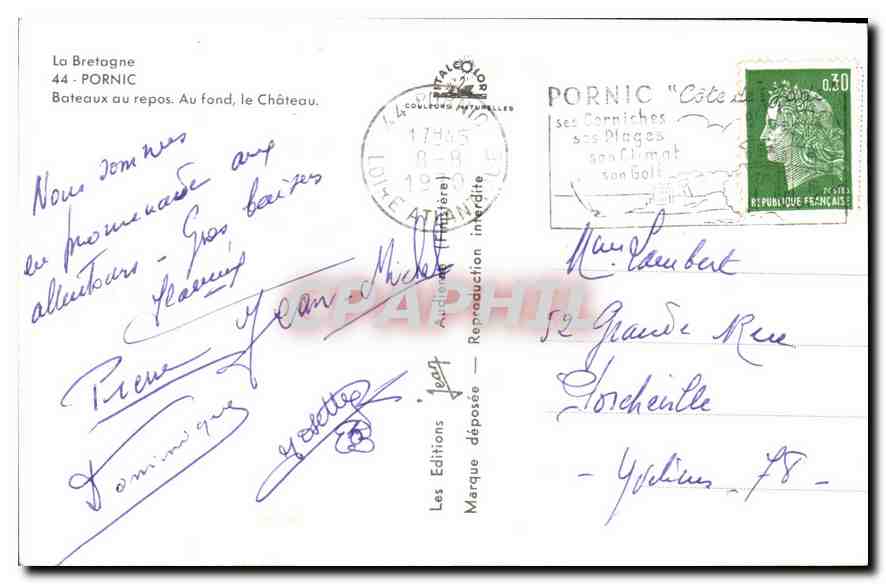 La Bretagne
44 - PORNIC
Bateaux au repos. Au fond, le Château.
Nous sommes
en promenade aux
allentours - Gros baisers
Jean-Michel
Pierre
Dominique
Josette
ITALCOLOR
COULEURS NATURELLES
44 PORNIC
17H45
8-8
LOIRE ATLANTIQUE
PORNIC "Côte de
ses Corniches
ses Plages
son Climat
son Golf
0,30
POSTES
REPUBLIQUE FRANÇAISE
Les Editions Jean Audierne (Finistère)
Marque déposée — Reproduction interdite
CPAPHIL
Mme Lambert
52 Grande Rue
Porcheville
- Yvelines - 78 -